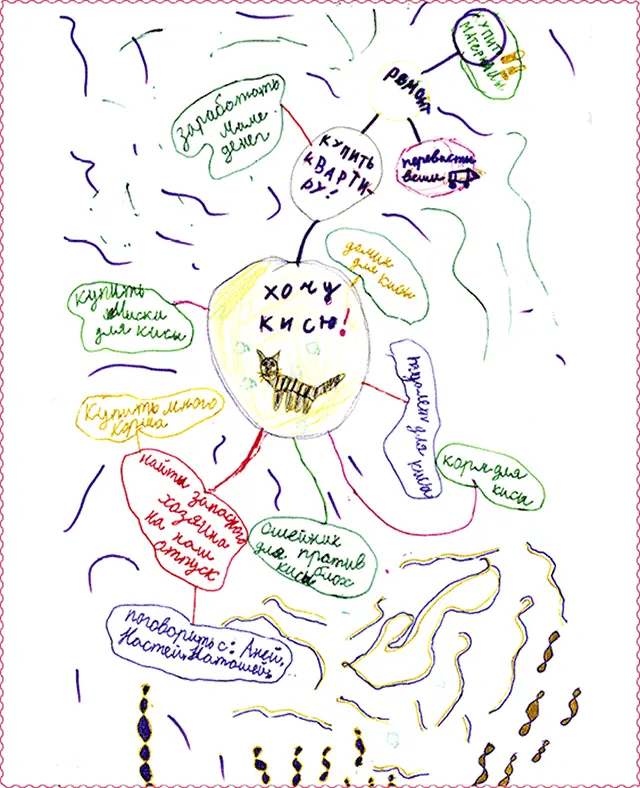 КУПИТЬ
МАТЕРИАЛЫ
РЕМОНТ
заработать
маме
денег
КУПИТЬ
КВАРТИ-
РУ!
перевести
вещи
домик
для кисы
ХОЧУ
КИСЮ!
купить
миски
для кисы
Купить много
корма
корм для
кисы
найти запасного
хозяина
на наш
отпуск
ошейник
для против
блох
кисы
поговорить с: Аней,
Настей, Наташей,